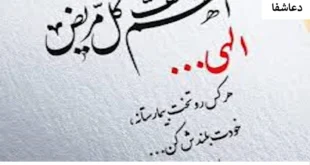 دعاشفا
اشف کل مریض
الهی...
هرکس رو تخت بیمارستانه،
خودت بلندش کن...